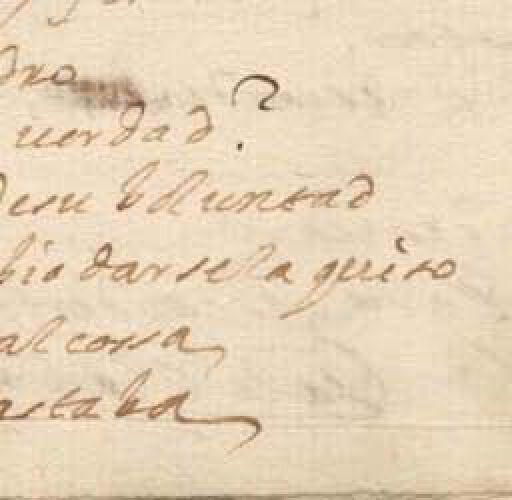 dro
uerdad?
desu boluntad
bio darsela quiso
al cossa
astaba